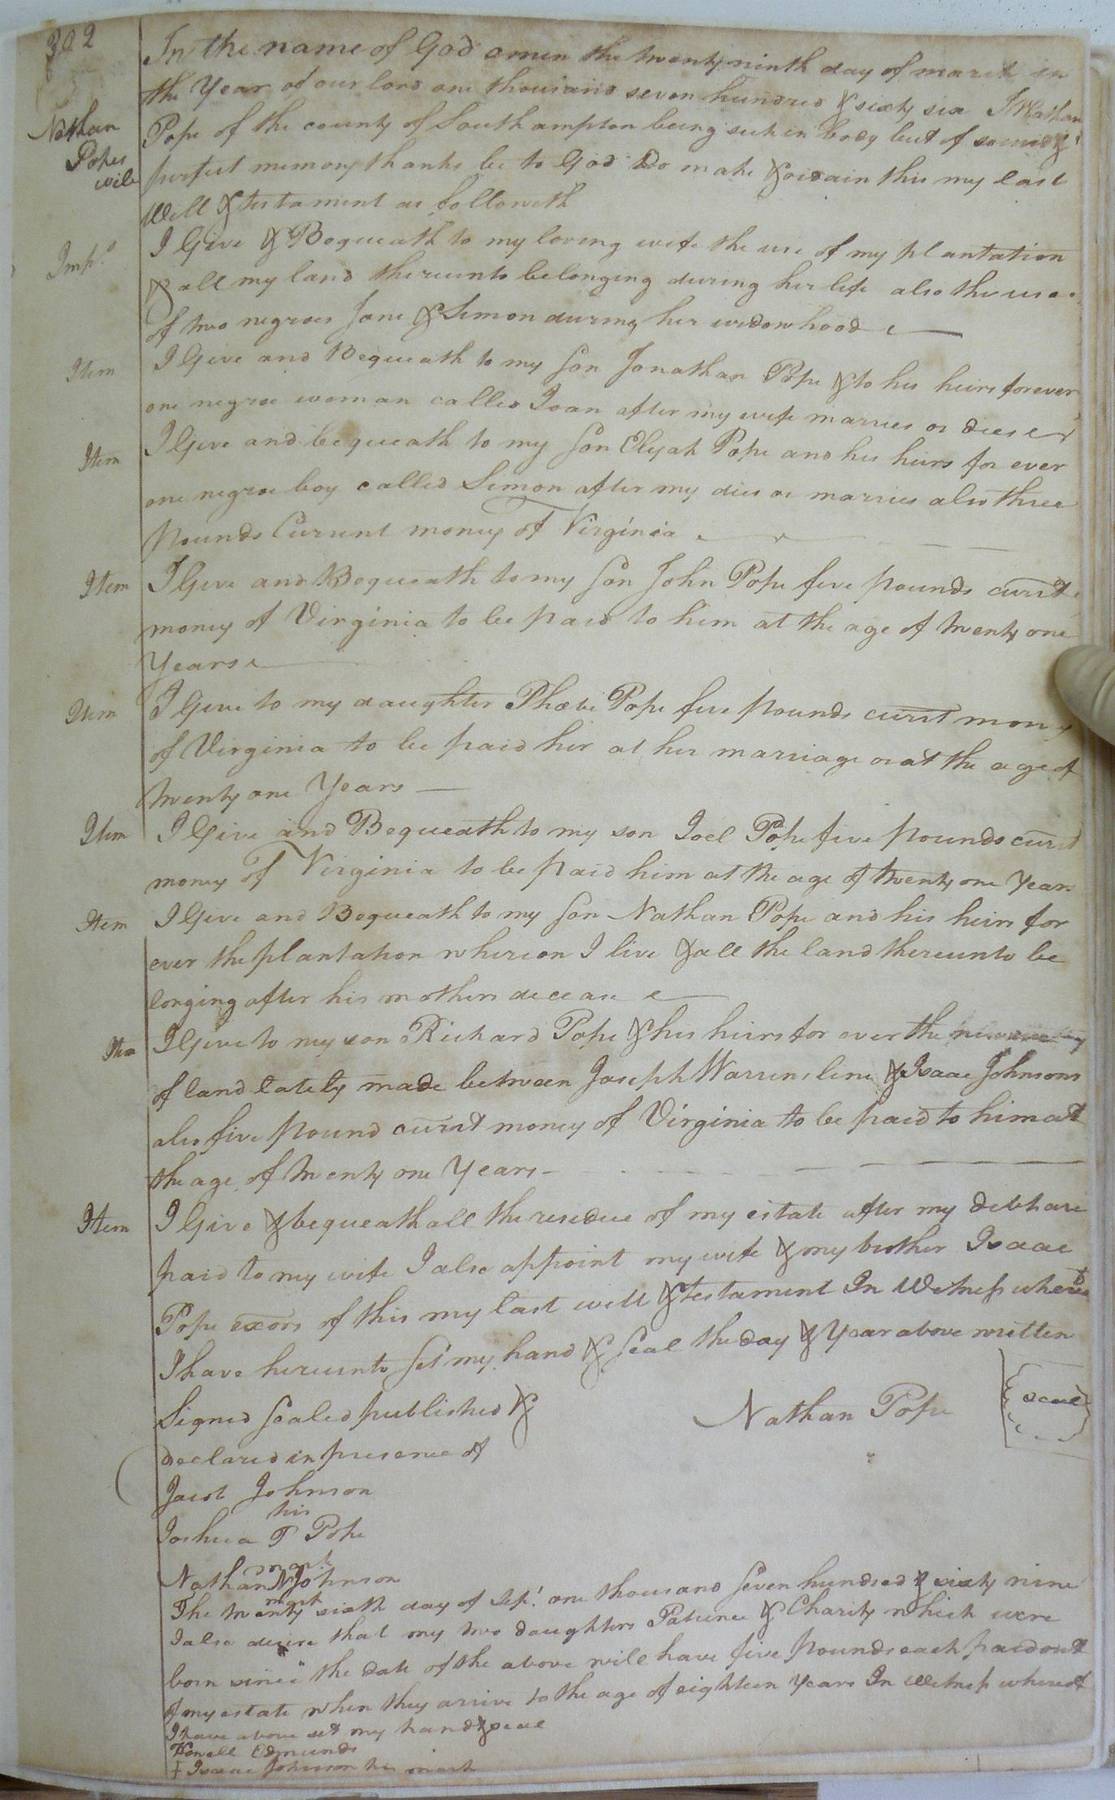 302
Nathan
Popes
will
In the name of God amen the twenty ninth day of march in
the Year of our lord one thousand seven hundred & sixty six I Nathan
Pope of the county of Southampton being sick in body but of sound &
perfect memory thanks be to God Do make & ordain this my last
Will & testament as followeth
Imp.s I Give & Bequeath to my loving wife the use of my plantation
& all my land thereunto belonging during her life also the use
of two negroes Jane & Simon during her widowhood
Item I Give and Bequeath to my Son Jonathan Pope & to his heirs forever
one negroe woman called Joan after my wife marries or dies
Item I Give and bequeath to my Son Elijah Pope and his heirs for ever
one negroe boy called Simon after my dies or marries also three
Pounds Current money of Virginia
Item I Give and Bequeath to my Son John Pope five pounds currt
money of Virginia to be paid to him at the age of twenty one
Years
Item I Give to my daughter Phœbe Pope five pounds currt money
of Virginia to be paid her at her marriage or at the age of
twenty one Years
Item I Give and Bequeath to my son Joel Pope five pounds currt
money of Virginia to be paid him at the age of twenty one Years
Item I Give and Bequeath to my Son Nathan Pope and his heirs for
ever the plantation whereon I live & all the land thereunto be
longing after his mothers decease
Item I Give to my son Richard Pope & his heirs for ever the
of land lately made between Joseph Warrens line & Isaac Johnsons
also five pound currt money of Virginia to be paid to him at
the age of twenty one Years
Item I Give & bequeath all the residue of my estate after my debts are
paid to my wife I also appoint my wife & my brother Isaac
Pope exors of this my last will & testament In Witness whereof
I have hereunto Set my hand & Seal the day & Year above written
Signed Sealed published &
Nathan Pope
seal
declared in presence of
Jacob Johnson
his
Joshua P Pope
mark
Nathan N Johnson
mark
The twenty sixth day of Sept. one thousand Seven hundred & sixty nine
I also desire that my two daughters Patience & Charity which were
born since the date of the above will have five Pounds each paid out
of my estate when they arrive to the age of eighteen Years In Witness whereof
I have above set my hand & seal
Howell Edmunds
+ Isaac Johnson his mark